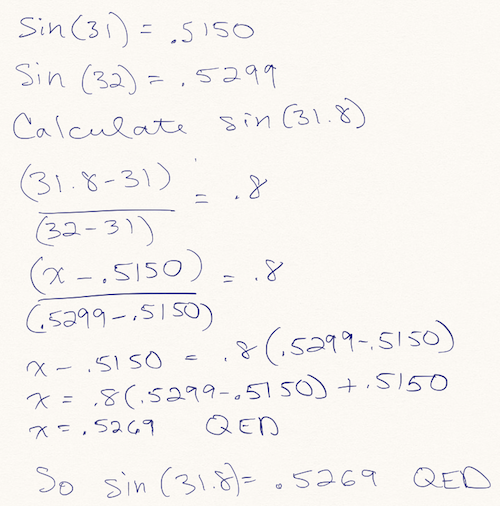 Sin(31) = .5150
Sin (32) = .5299
Calculate sin(31.8)
(31.8-31)
(32-31)
= .8
(x - .5150)
(.5299-.5150)
= .8
x - .5150 = .8(.5299-.5150)
x = .8(.5299-.5150) + .5150
x = .5269 QED
So sin (31.8)= .5269 QED